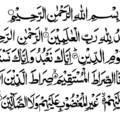 بسم الله الرحمن الرحيم
لله رب العلمين الرحمن
يوم الدين إياك نعبد
الصراط المستقيم صراط الذين
غير المغضوب عليهم ولا الضالين